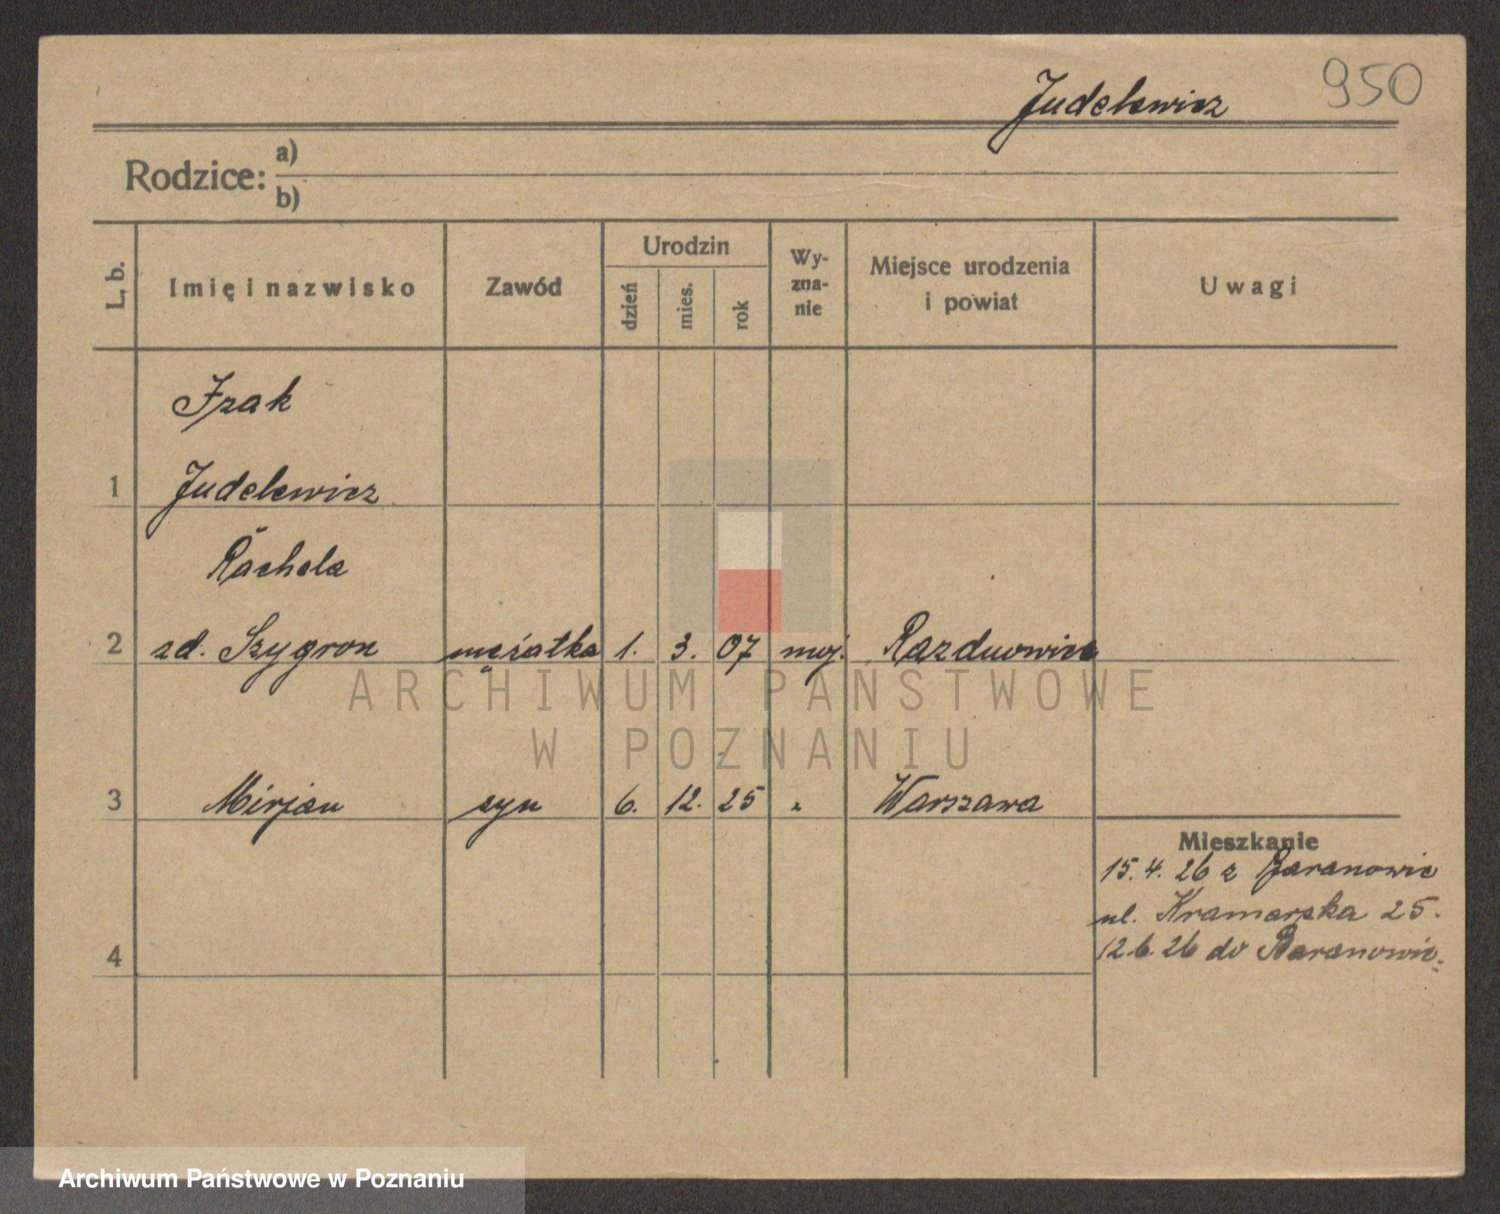 950
Judelewicz
Rodzice: a)
b)
L. b.
Imię i nazwisko
Zawód
Urodzin
dzień
mies.
rok
Wy-
zna-
nie
Miejsce urodzenia
i powiat
Uwagi
Izak
1 Judelewicz
Rachela
2 zd. Szygron mężatka 1. 3. 07 moj.
3 Mirjan syn 6. 12. 25 „ Warszawa
Mieszkanie
15. 4. 26 z Baranowic
ul. Kramarska 25.
12.6.26 do Baranowic
4
ARCHIWUM PAŃSTWOWE
W POZNANIU
Archiwum Państwowe w Poznaniu